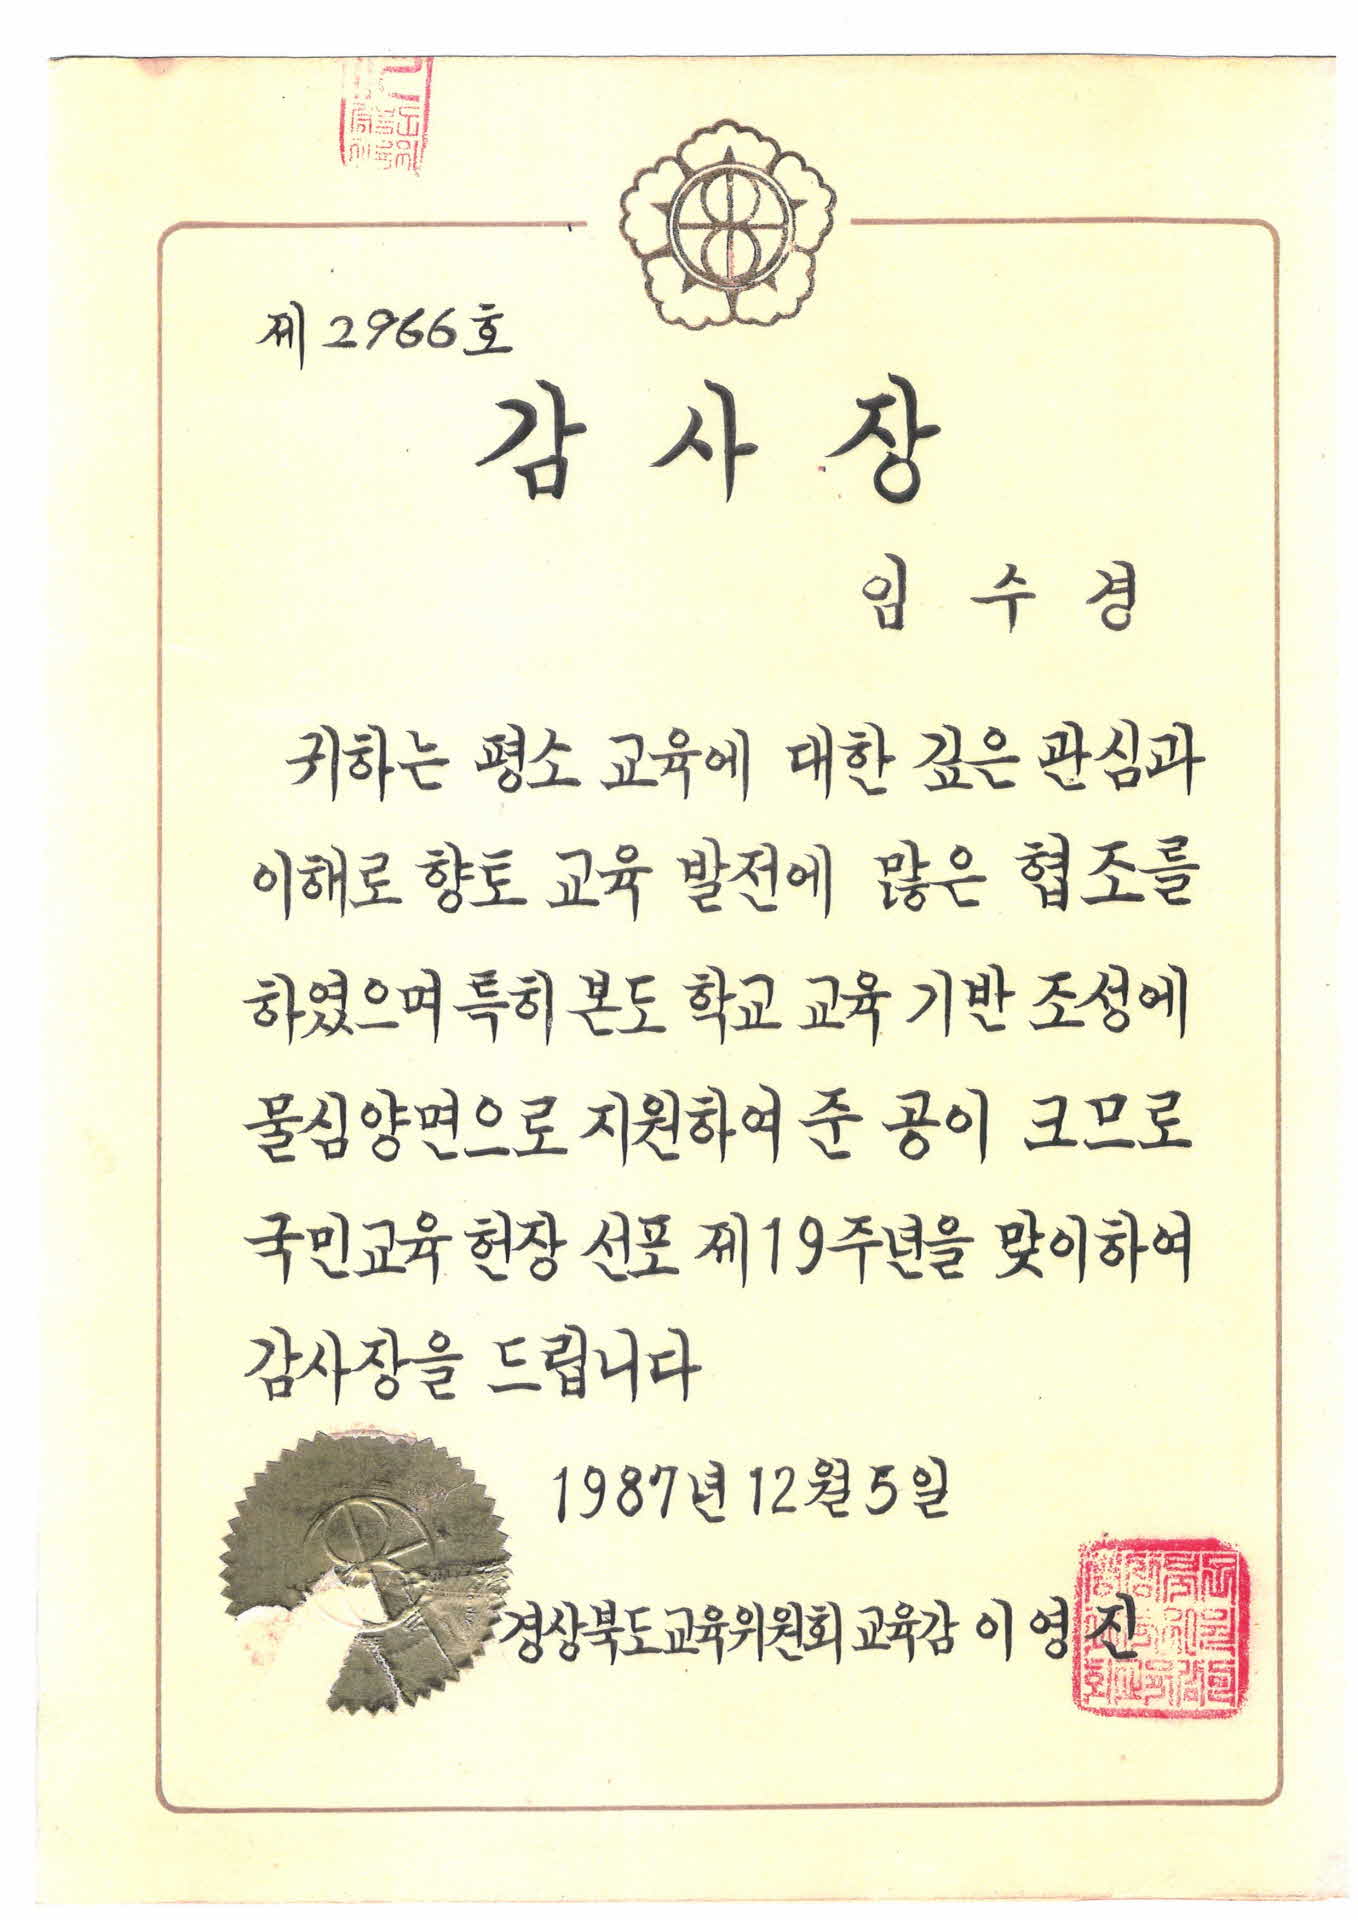 제 2966 호
감 사 장
임 수 경
귀하는 평소 교육에 대한 깊은 관심과
이해로 향토 교육 발전에 많은 협조를
하였으며 특히 본도 학교 교육 기반 조성에
물심양면으로 지원하여 준 공이 크므로
국민교육 헌장 선포 제19주년을 맞이하여
감사장을 드립니다
1987년 12월 5일
경상북도교육위원회 교육감 이 영 진